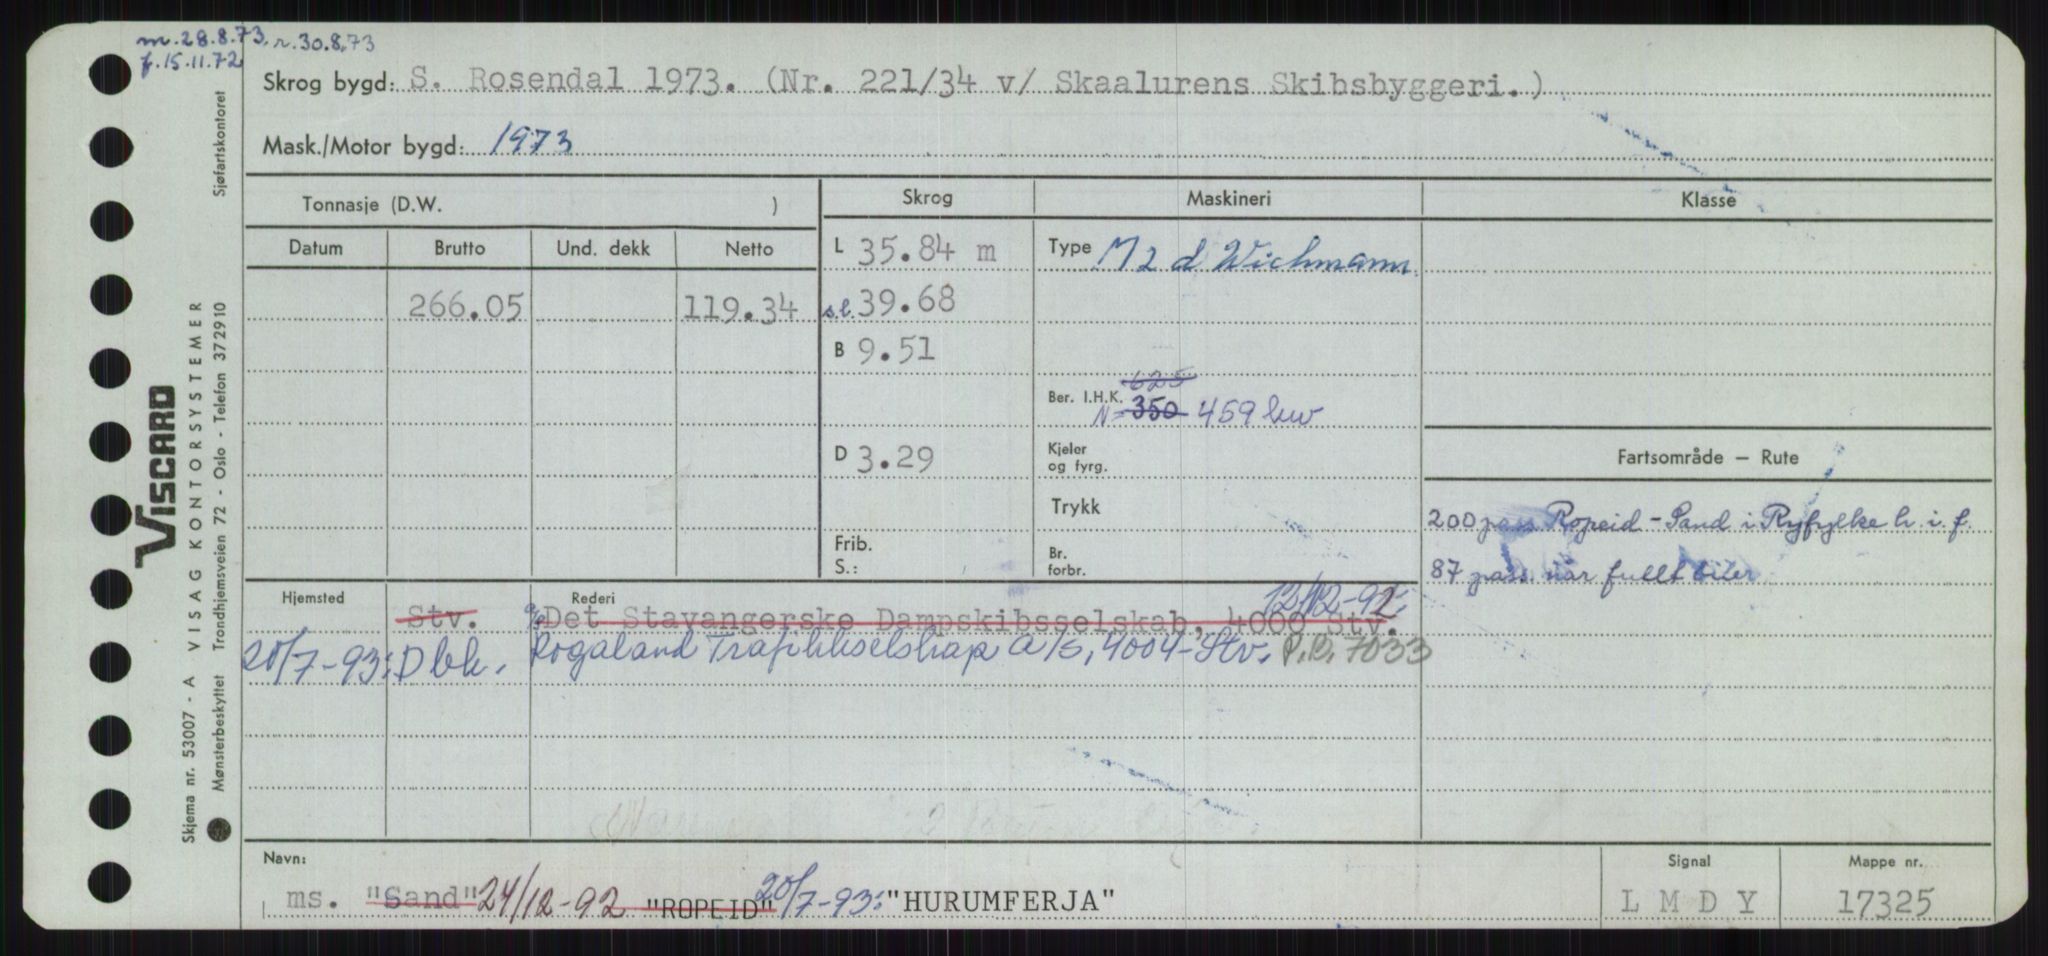 m. 28.8.73. r. 30.8.73
f. 15.11.72
Skrog bygd: S. Rosendal 1973. (Nr. 221/34 v/ Skaalurens Skibsbyggeri.)
Mask./Motor bygd: 1973
Tonnasje (D.W. )
Skrog
Maskineri
Klasse
Datum Brutto Und. dekk Netto
L 35.84 m
Type M 2 d Wichmann
266.05 119.34
s.l. 39.68
B 9.51
625
Ber. I.H.K.
N= 350 459 kw
D 3.29
Kjeler
og fyrg.
Fartsområde — Rute
Trykk
200 pass Ropeid - Sand i Ryfylke h. i. f.
Frib.
S.:
Br.
forbr.
87 pass når fullt biler
Hjemsted Rederi 12/12-92:
Stv. Det Stavangerske Dampskibsselskab, 4000 Stv.
20/7-93: Dbk. Rogaland Trafikkselskap A/S, 4004-Stv. P.B. 7033
Navn: Signal Mappe nr.
ms. "Sand" 24/12-92 "ROPEID" 20/7-93: "HURUMFERJA" L M D Y 17325
Skjema nr. 53007 - A VISAG KONTORSYSTEMER
Mønsterbeskyttet Trondhjemsveien 72 - Oslo - Telefon 372910 Sjøfartskontoret
VISCARD